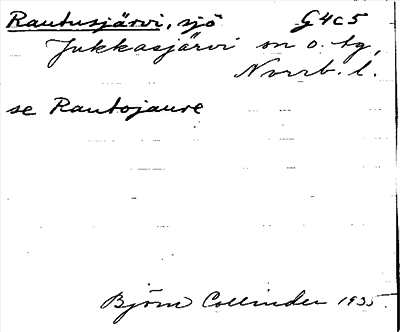 Rautusjärvi, sjö G4c5
Jukkasjärvi sn o. tg,
Norrb. l.
se Rautojaure
Björn Collinder 1935.